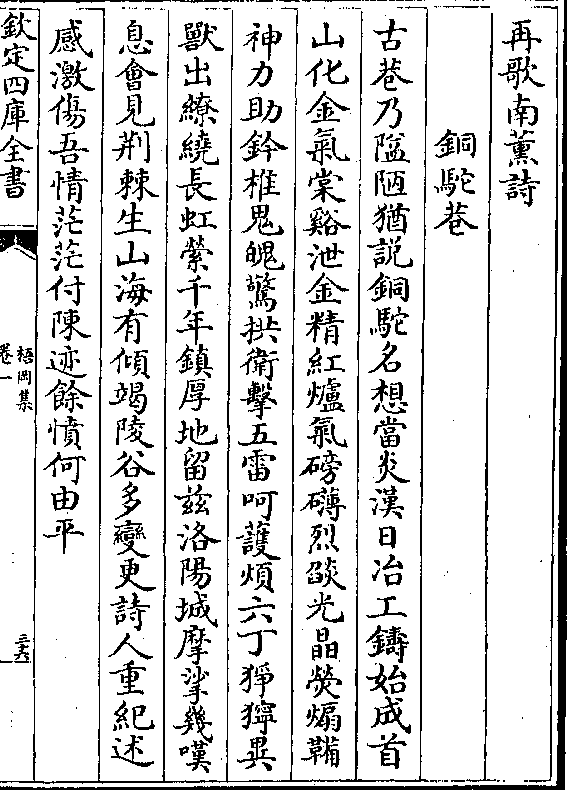 再歌南薰詩
銅駝巷
古巷乃隘陋猶説銅駝名想當炎漢日冶工鑄始成首
山化金氣棠谿泄金精紅爐氣磅礴烈燄光晶熒煽鞴
神力助鈐椎鬼魄驚拱衛擊五雷呵護煩六丁猙獰異
獸出繚繞長虹縈千年鎮厚地留兹洛陽城摩挲幾嘆
息會見荆棘生山海有傾竭陵谷多變更詩人重紀述
感激傷吾情茫茫付陳迹餘憤何由平
欽定四庫全書
梧岡集
卷一
三六